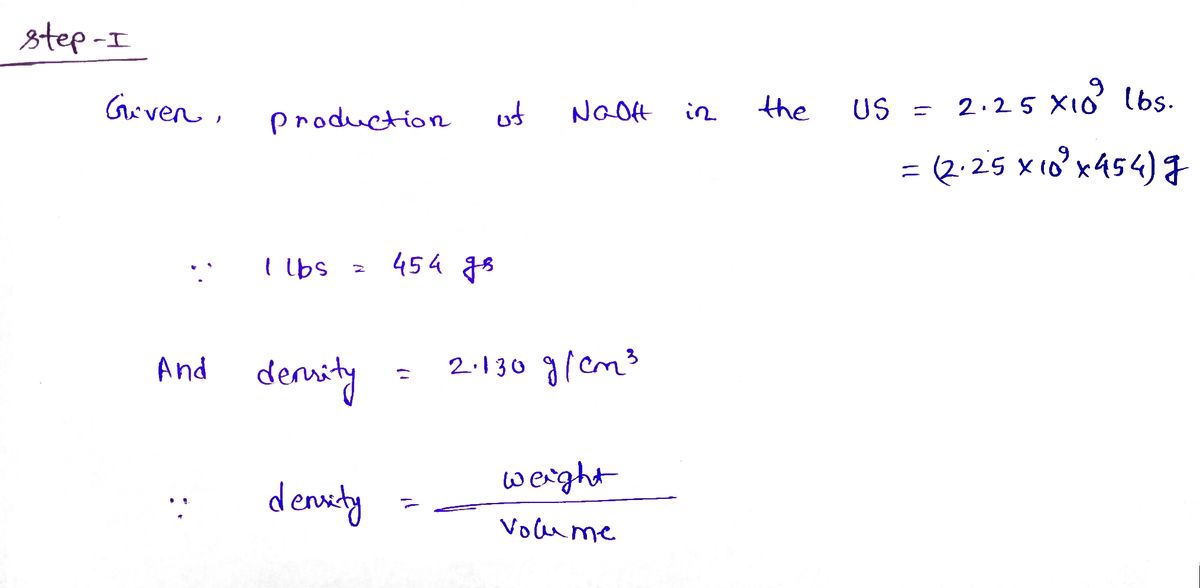 step-I
Given, production of NaOH in the US = 2.25 ×10⁹ lbs.
= (2.25 × 10⁹ × 454) g
∵ 1 lbs = 454 gs
And density = 2.130 g/cm³
∵ density = weight
volume